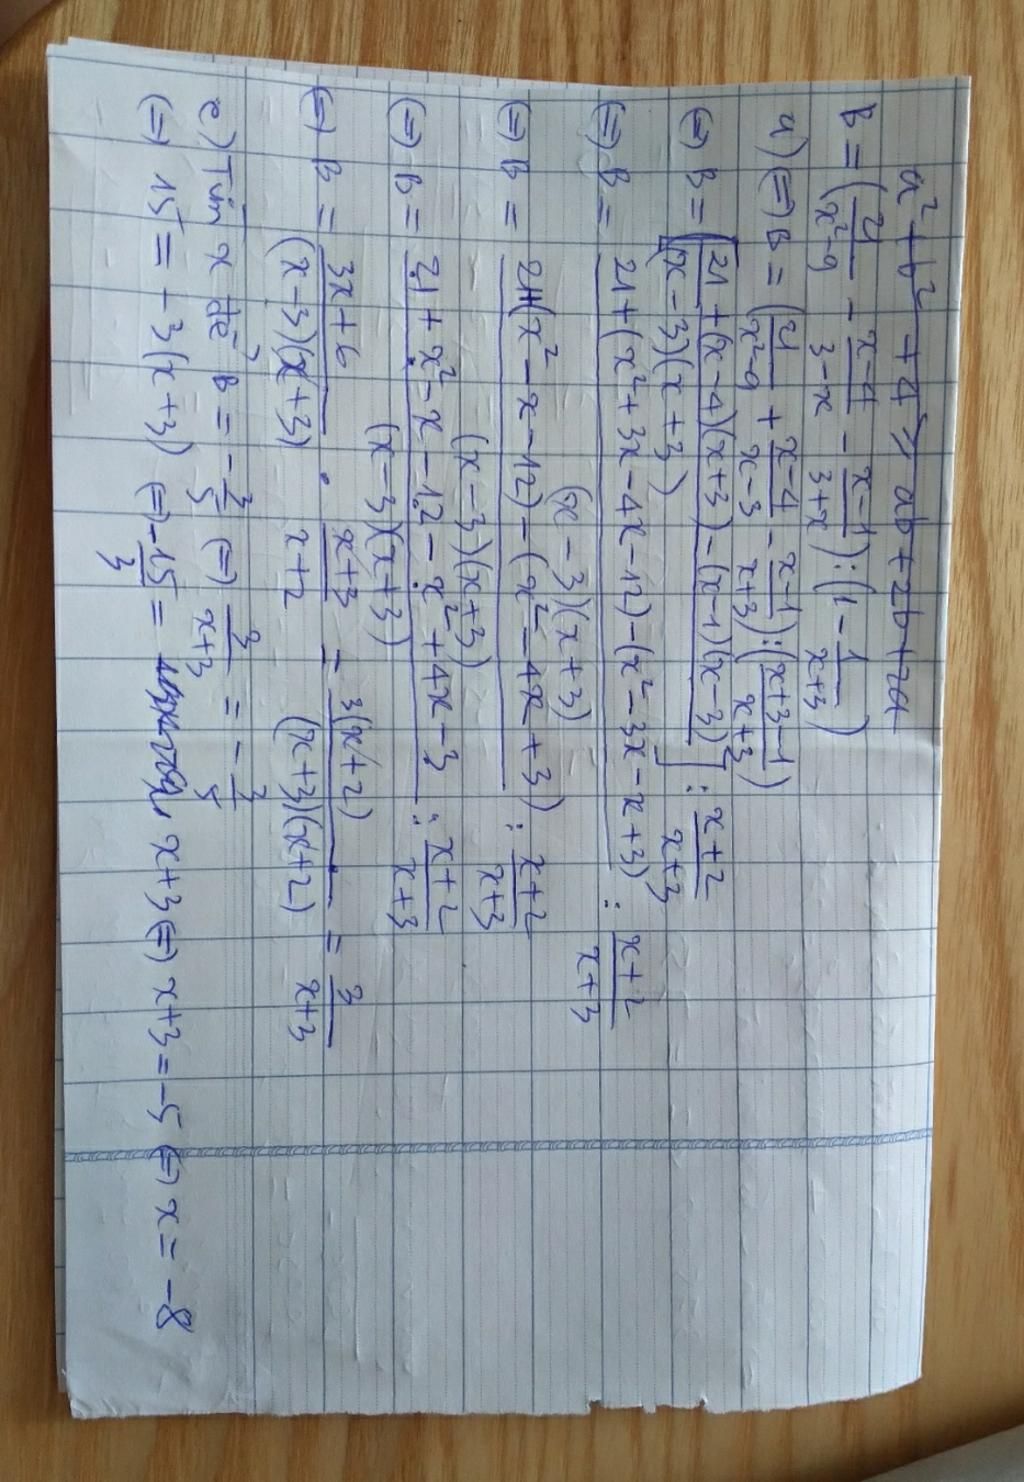 a² + b² + 4 ≥ ab + 2b + 2a
B = (21/(x²-9) - (x-4)/(3-x) - (x-1)/(3+x)) : (1 - 1/(x+3))
a) (=) B = (21/(x²-9) + (x-4)/(x-3) - (x-1)/(x+3)) : ((x+3-1)/(x+3))
(=) B = [(21 + (x-4)(x+3) - (x-1)(x-3))/((x-3)(x+3))] : (x+2)/(x+3)
(=) B = (21 + (x² + 3x - 4x - 12) - (x² - 3x - x + 3))/((x-3)(x+3)) : (x+2)/(x+3)
(=) B = (21 + (x² - x - 12) - (x² - 4x + 3))/((x-3)(x+3)) : (x+2)/(x+3)
(=) B = (21 + x² - x - 12 - x² + 4x - 3)/((x-3)(x+3)) : (x+2)/(x+3)
(=) B = (3x+6)/((x-3)(x+3)) . (x+3)/(x+2) = 3(x+2)/((x+3)(x+2)) = 3/(x+3)
c) Tìm x để B = -3/5 (=) 3/(x+3) = -3/5
(=) 15 = -3(x+3) (=) -15/3 = x+3 (=) x+3 = -5 (=) x = -8